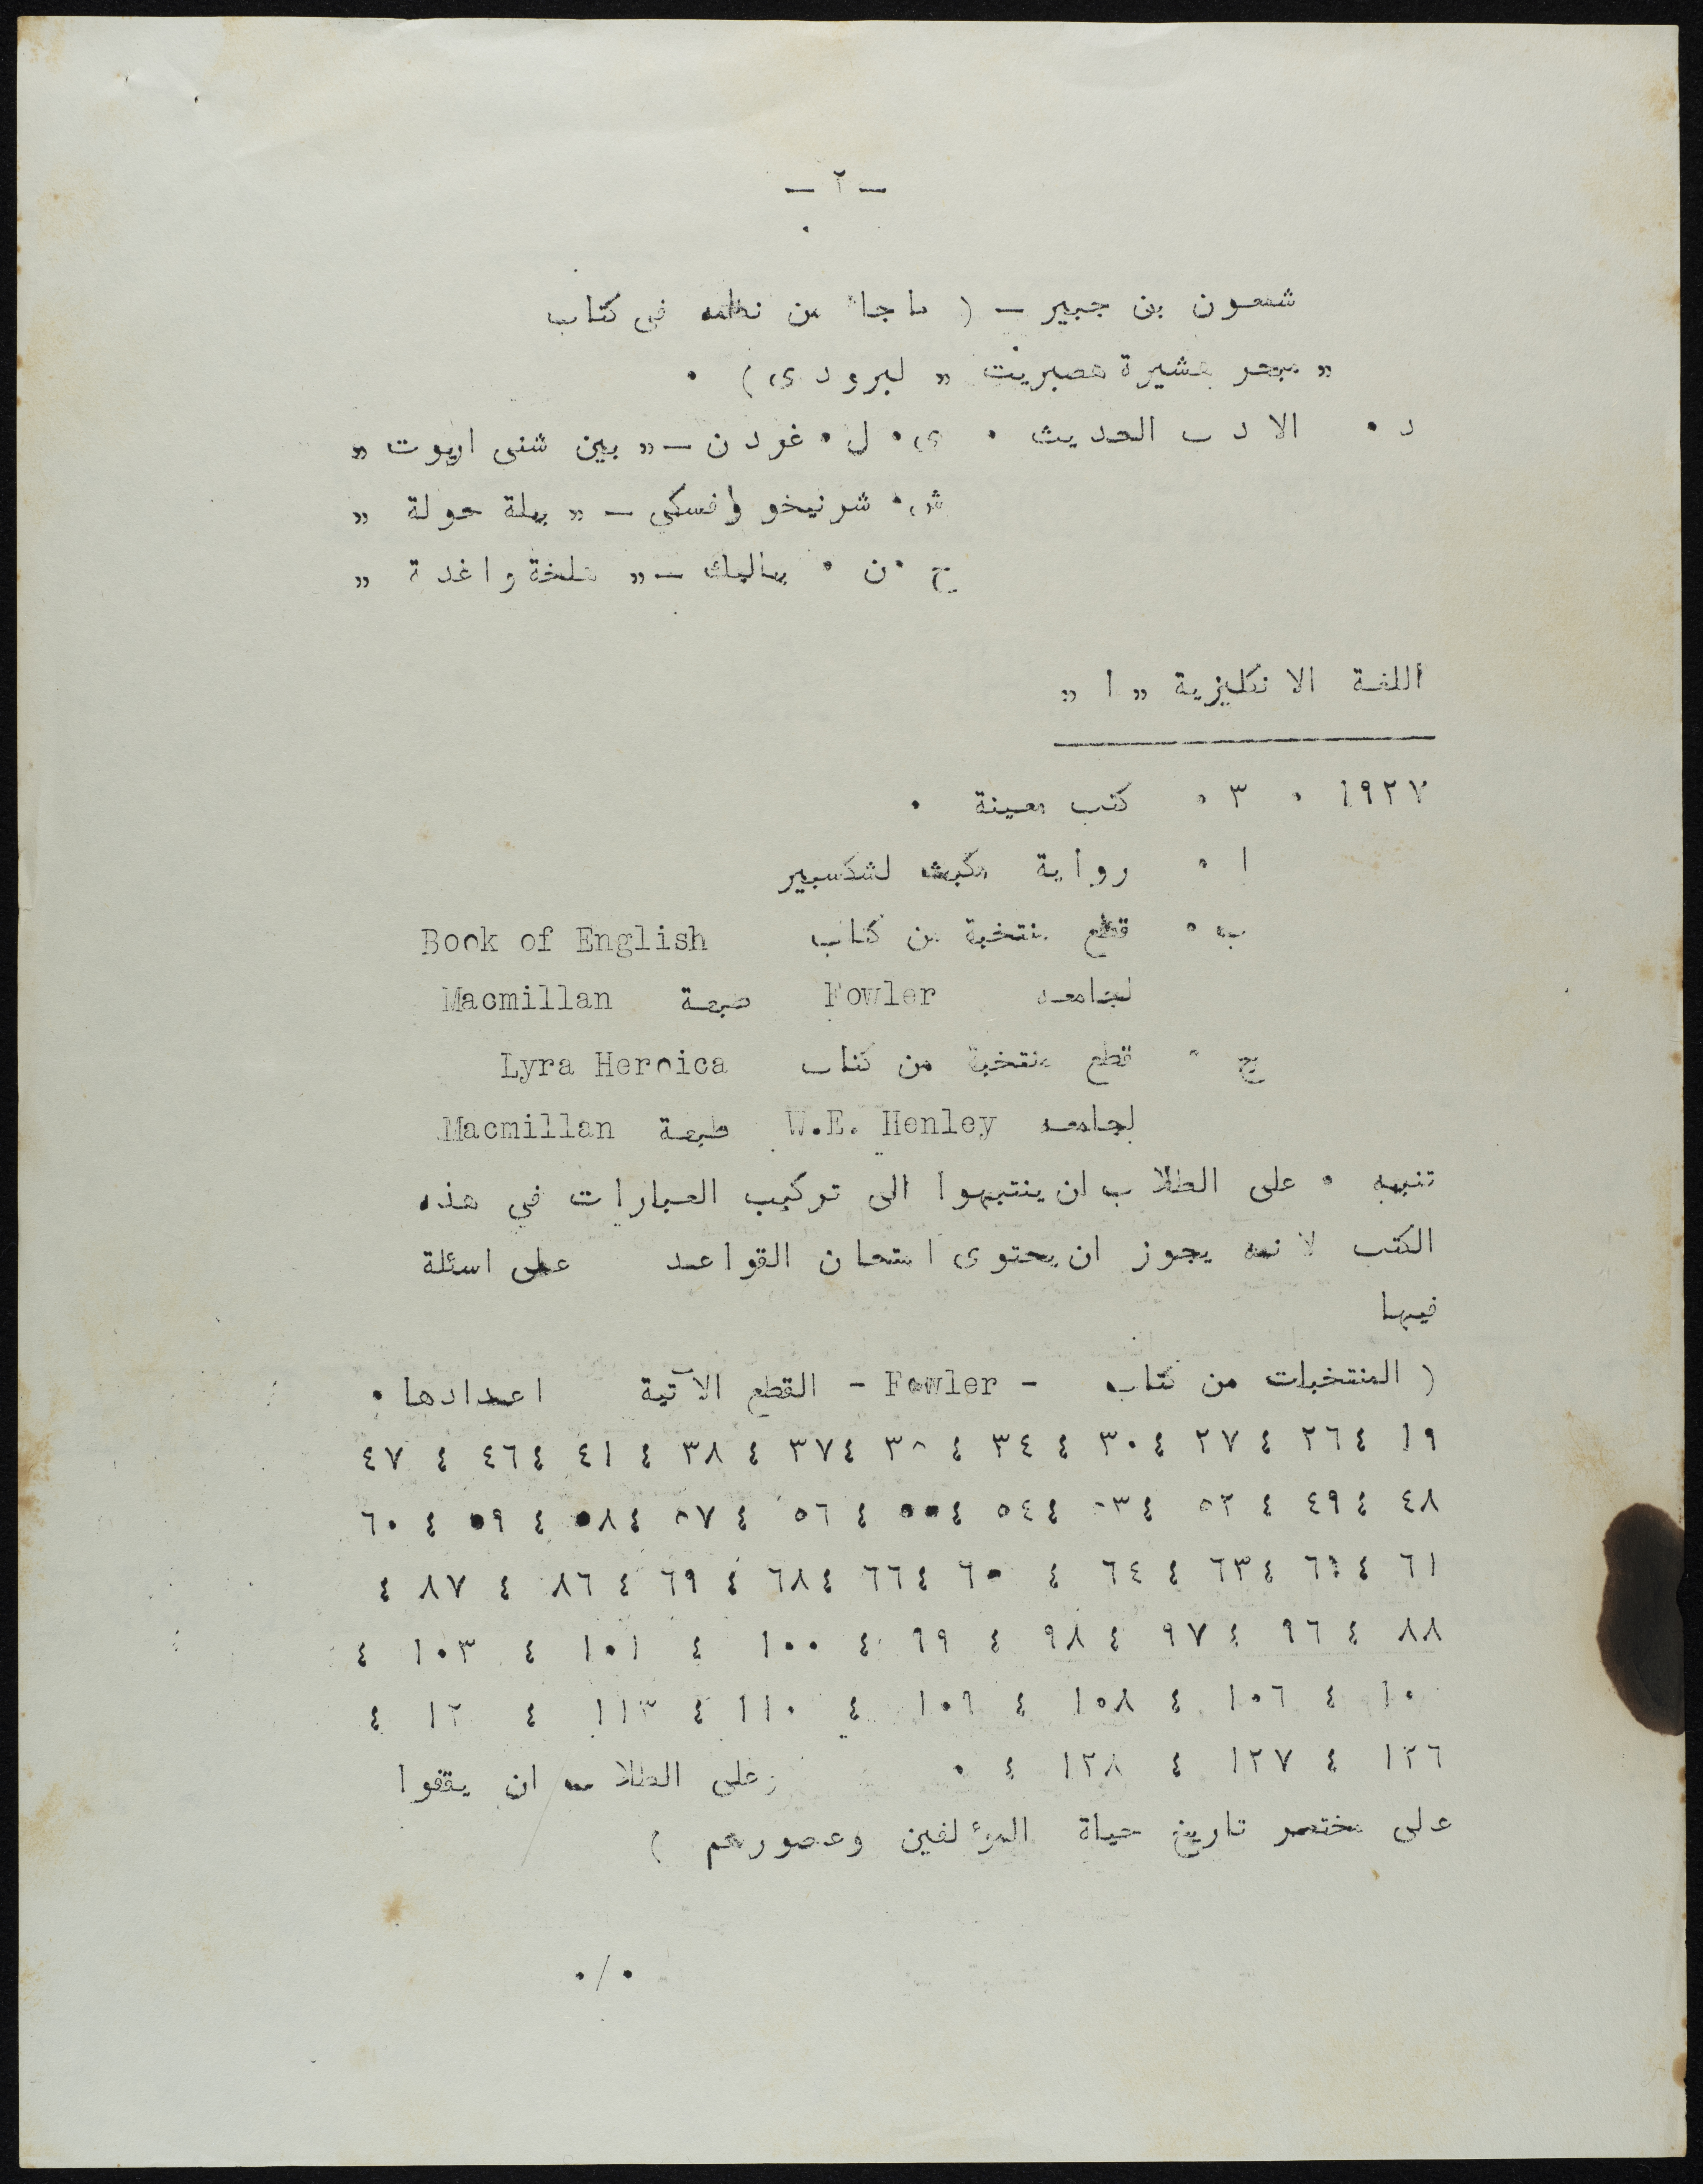 - ٢ -
شمعون بن جبير - ( ما جاء من نظمه فى كتاب
„ مبحر هشيرة هعبريت „ لبرودى ) ٠
د ٠ الادب الحديث ٠ ى ٠ ل ٠ غوردن - „ بين شنى اريوت „
ش ٠ شرنيخوفسكى - „ بيلة حولة „
ح ٠ ن ٠ بياليك - „ واغدة „
اللغة الانكليزية „ ا „
١٩٢٧ ٠ ٣ ٠ كتب معينة ٠
ا ٠ رواية مكبث لشكسبير
ب ٠ قطع منتخبة من كتاب Book of English
لجامعه Fowler طبعة Macmillan
ج ٠ قطع منتخبة من كتاب Lyra Heroica
لجامعه W.E. Henley طبعة Macmillan
تنبيه ٠ على الطلاب ان ينتبهوا الى تركيب العبارات في هذه
الكتب لانه يجوز ان يحتوى امتحان القواعد على اسئلة
فيها
( المنتخبات من كتاب - Fowler - القطع الآتية اعدادها ٠
١٩ ؛ ٢٦ ؛ ٢٧ ؛ ٣٠ ؛ ٣٤ ؛ ٣٥ ؛ ٣٧ ؛ ٣٨ ؛ ٤١ ؛ ٤٦ ؛ ٤٧
٤٨ ؛ ٤٩ ؛ ٥٢ ؛ ٥٣ ؛ ٥٤ ؛ ٥٥ ؛ ٥٦ ؛ ٥٧ ؛ ٥٨ ؛ ٥٩ ؛ ٦٠
٦١ ؛ ؛ ٦٣ ؛ ٦٤ ؛ ٦٥ ؛ ٦٦ ؛ ٦٨ ؛ ٦٩ ؛ ٨٦ ؛ ٨٧ ؛
٨٨ ؛ ٩٦ ؛ ٩٧ ؛ ٩٨ ؛ ٩٩ ؛ ١٠٠ ؛ ١٠١ ؛ ١٠٣ ؛
؛ ١٠٦ ؛ ١٠٨ ؛ ١٠٩ ؛ ١١٠ ؛ ١١٣ ؛ ؛
١٢٦ ؛ ١٢٧ ؛ ١٢٨ ؛ ٠ وعلى الطلاب ان يقفوا
على مختصر تاريخ حياة المؤلفين وعصورهم )
٠/٠